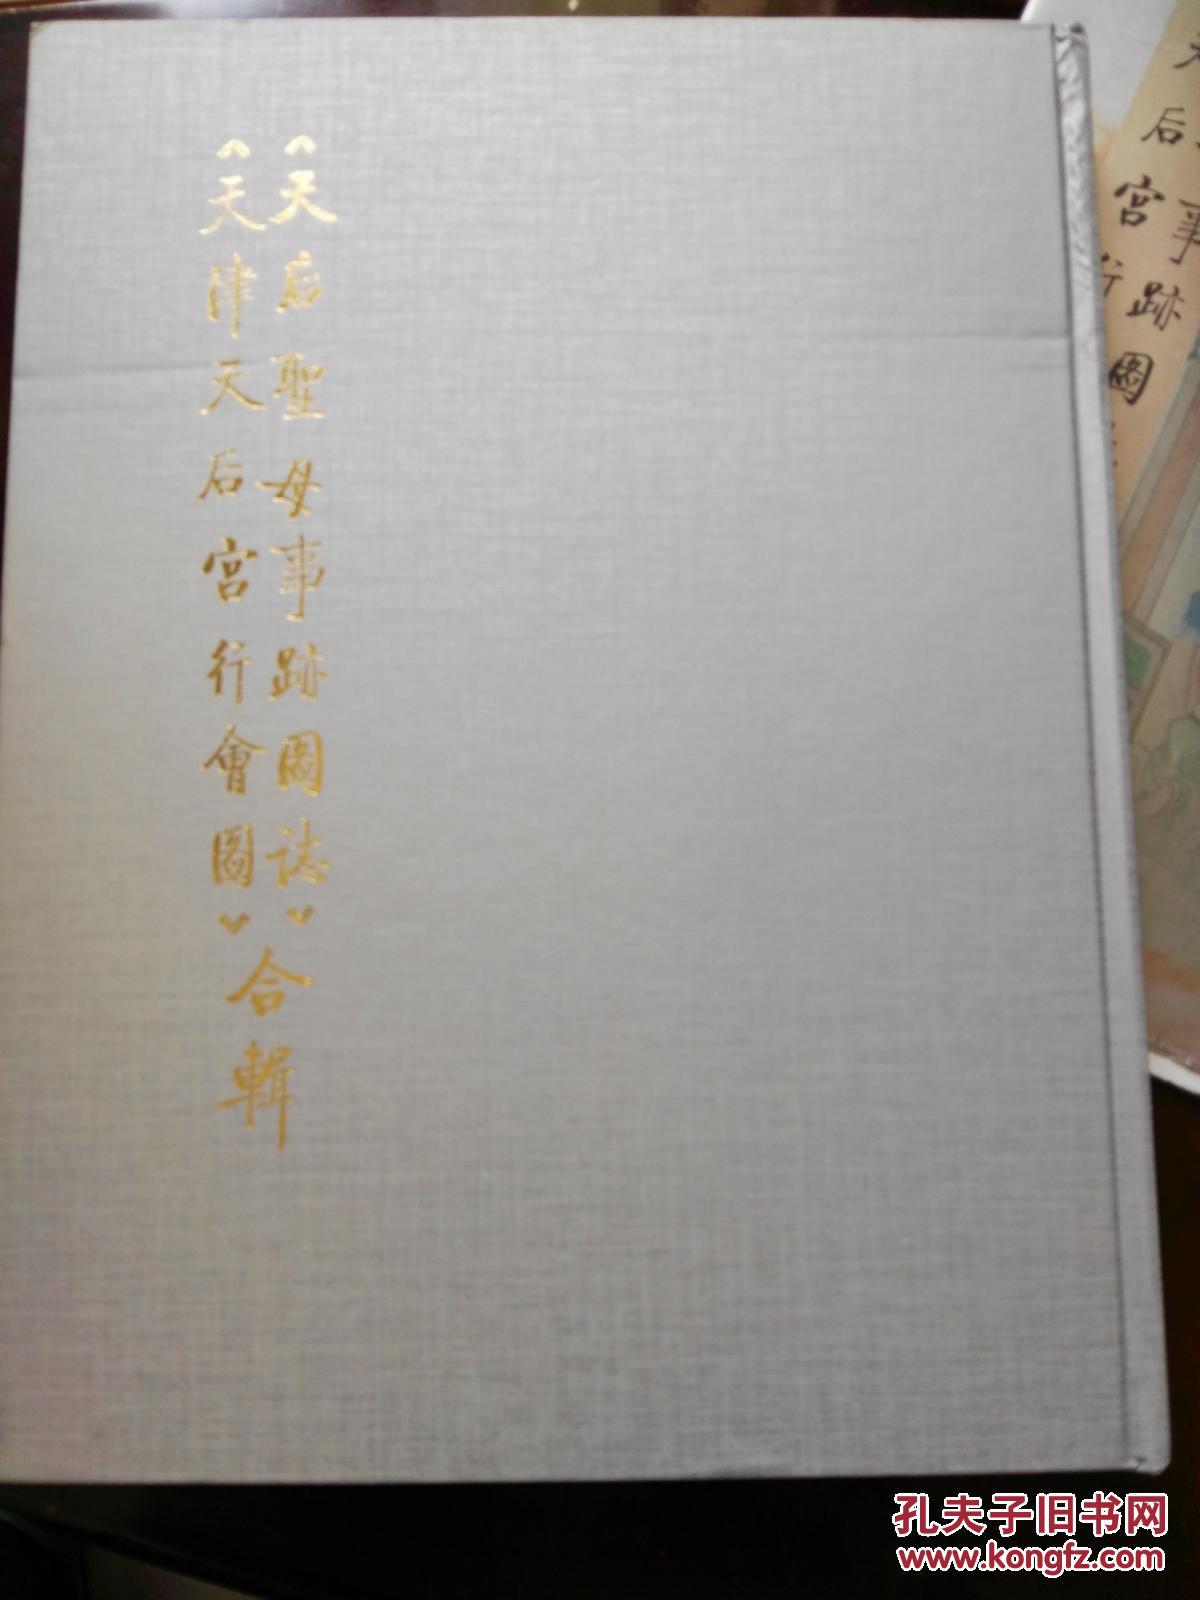 《天后聖母事跡圖誌》
《天津天后宮行會圖》
合輯
事跡圖
天后宮行
孔夫子旧书网
www.kongfz.com